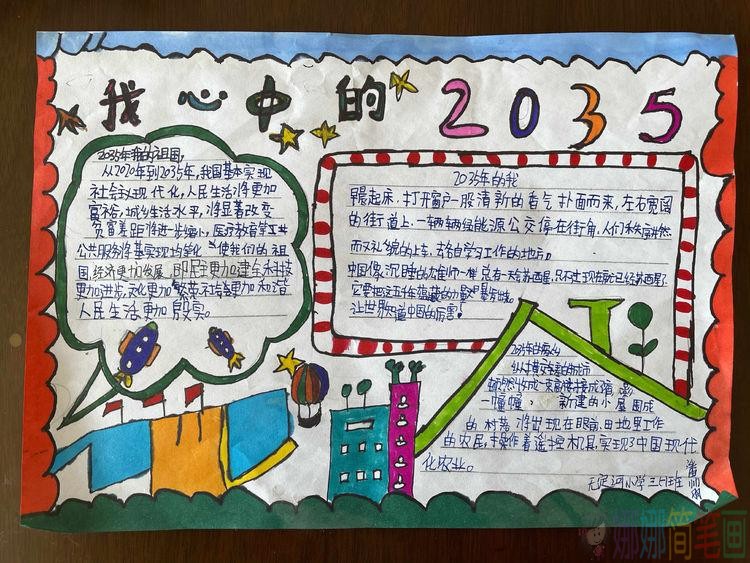 我心中的2035
2035年我的祖国,
从2020年到2035年,我国基本实现
社会主义现代化,人民生活将更加
富裕,城乡生活水平,将显著改变
贫富差距将进一步缩小,医疗教育等
公共服务将基本实现均等化 使我们的祖
国,经济更加发展,即民主更加健全科技
更加进步,文化更加繁荣 社会更加和谐
人民生活更加殷实。
2035年的我
早晨起床,打开窗户一股清新的香气扑面而来,左右宽阔
的街道上,一辆辆绿能源公交停在街角,人们秩序井然
而又礼貌的上车,去各自学习工作的地方。
中国像沉睡的雄狮一样总有一天会苏醒,只不过现在就已经苏醒了
它要把这五千年蕴藏的力量
让世界知道中国的厉害!
2035年的家乡
纵横交错的城市
一幢幢, 新建的小屋围成
的村落将出现在眼前,田地里工作
的农民,手操作着遥控机具,实现了中国现代
化农业。
无定河小学三(1)班
娜娜简笔画